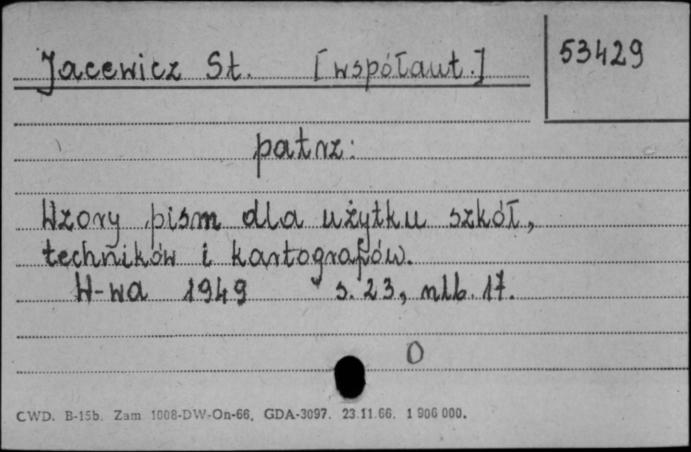 Jacewicz St. [współaut.]
53429
patrz:
Wzory pism dla użytku szkół,
techników i kartografów.
W-wa 1949 s. 23, nlb. 17.
O
CWD. B-15b. Zam 1008-DW-On-66, GDA-3097. 23.11.66. 1 906 000.